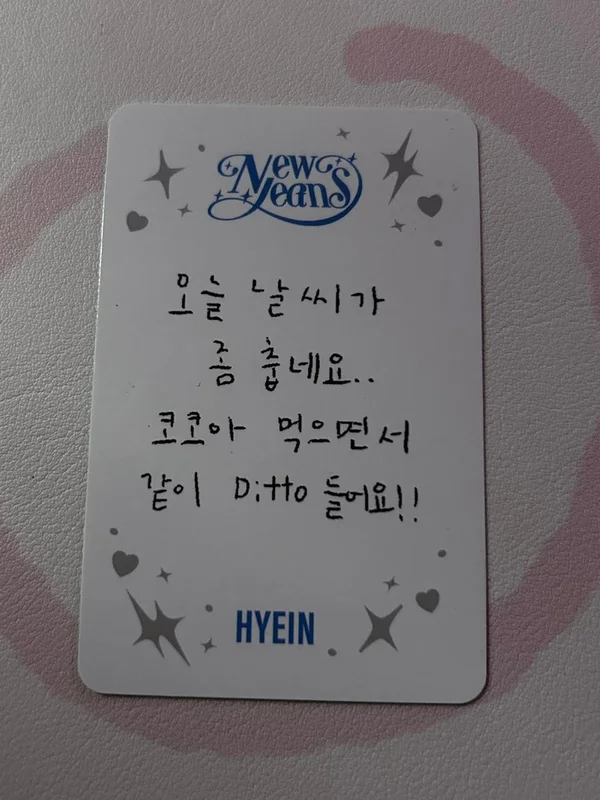 NewJeans
오늘 날씨가
좀 춥네요..
코코아 먹으면서
같이 Ditto 들어요!!
HYEIN